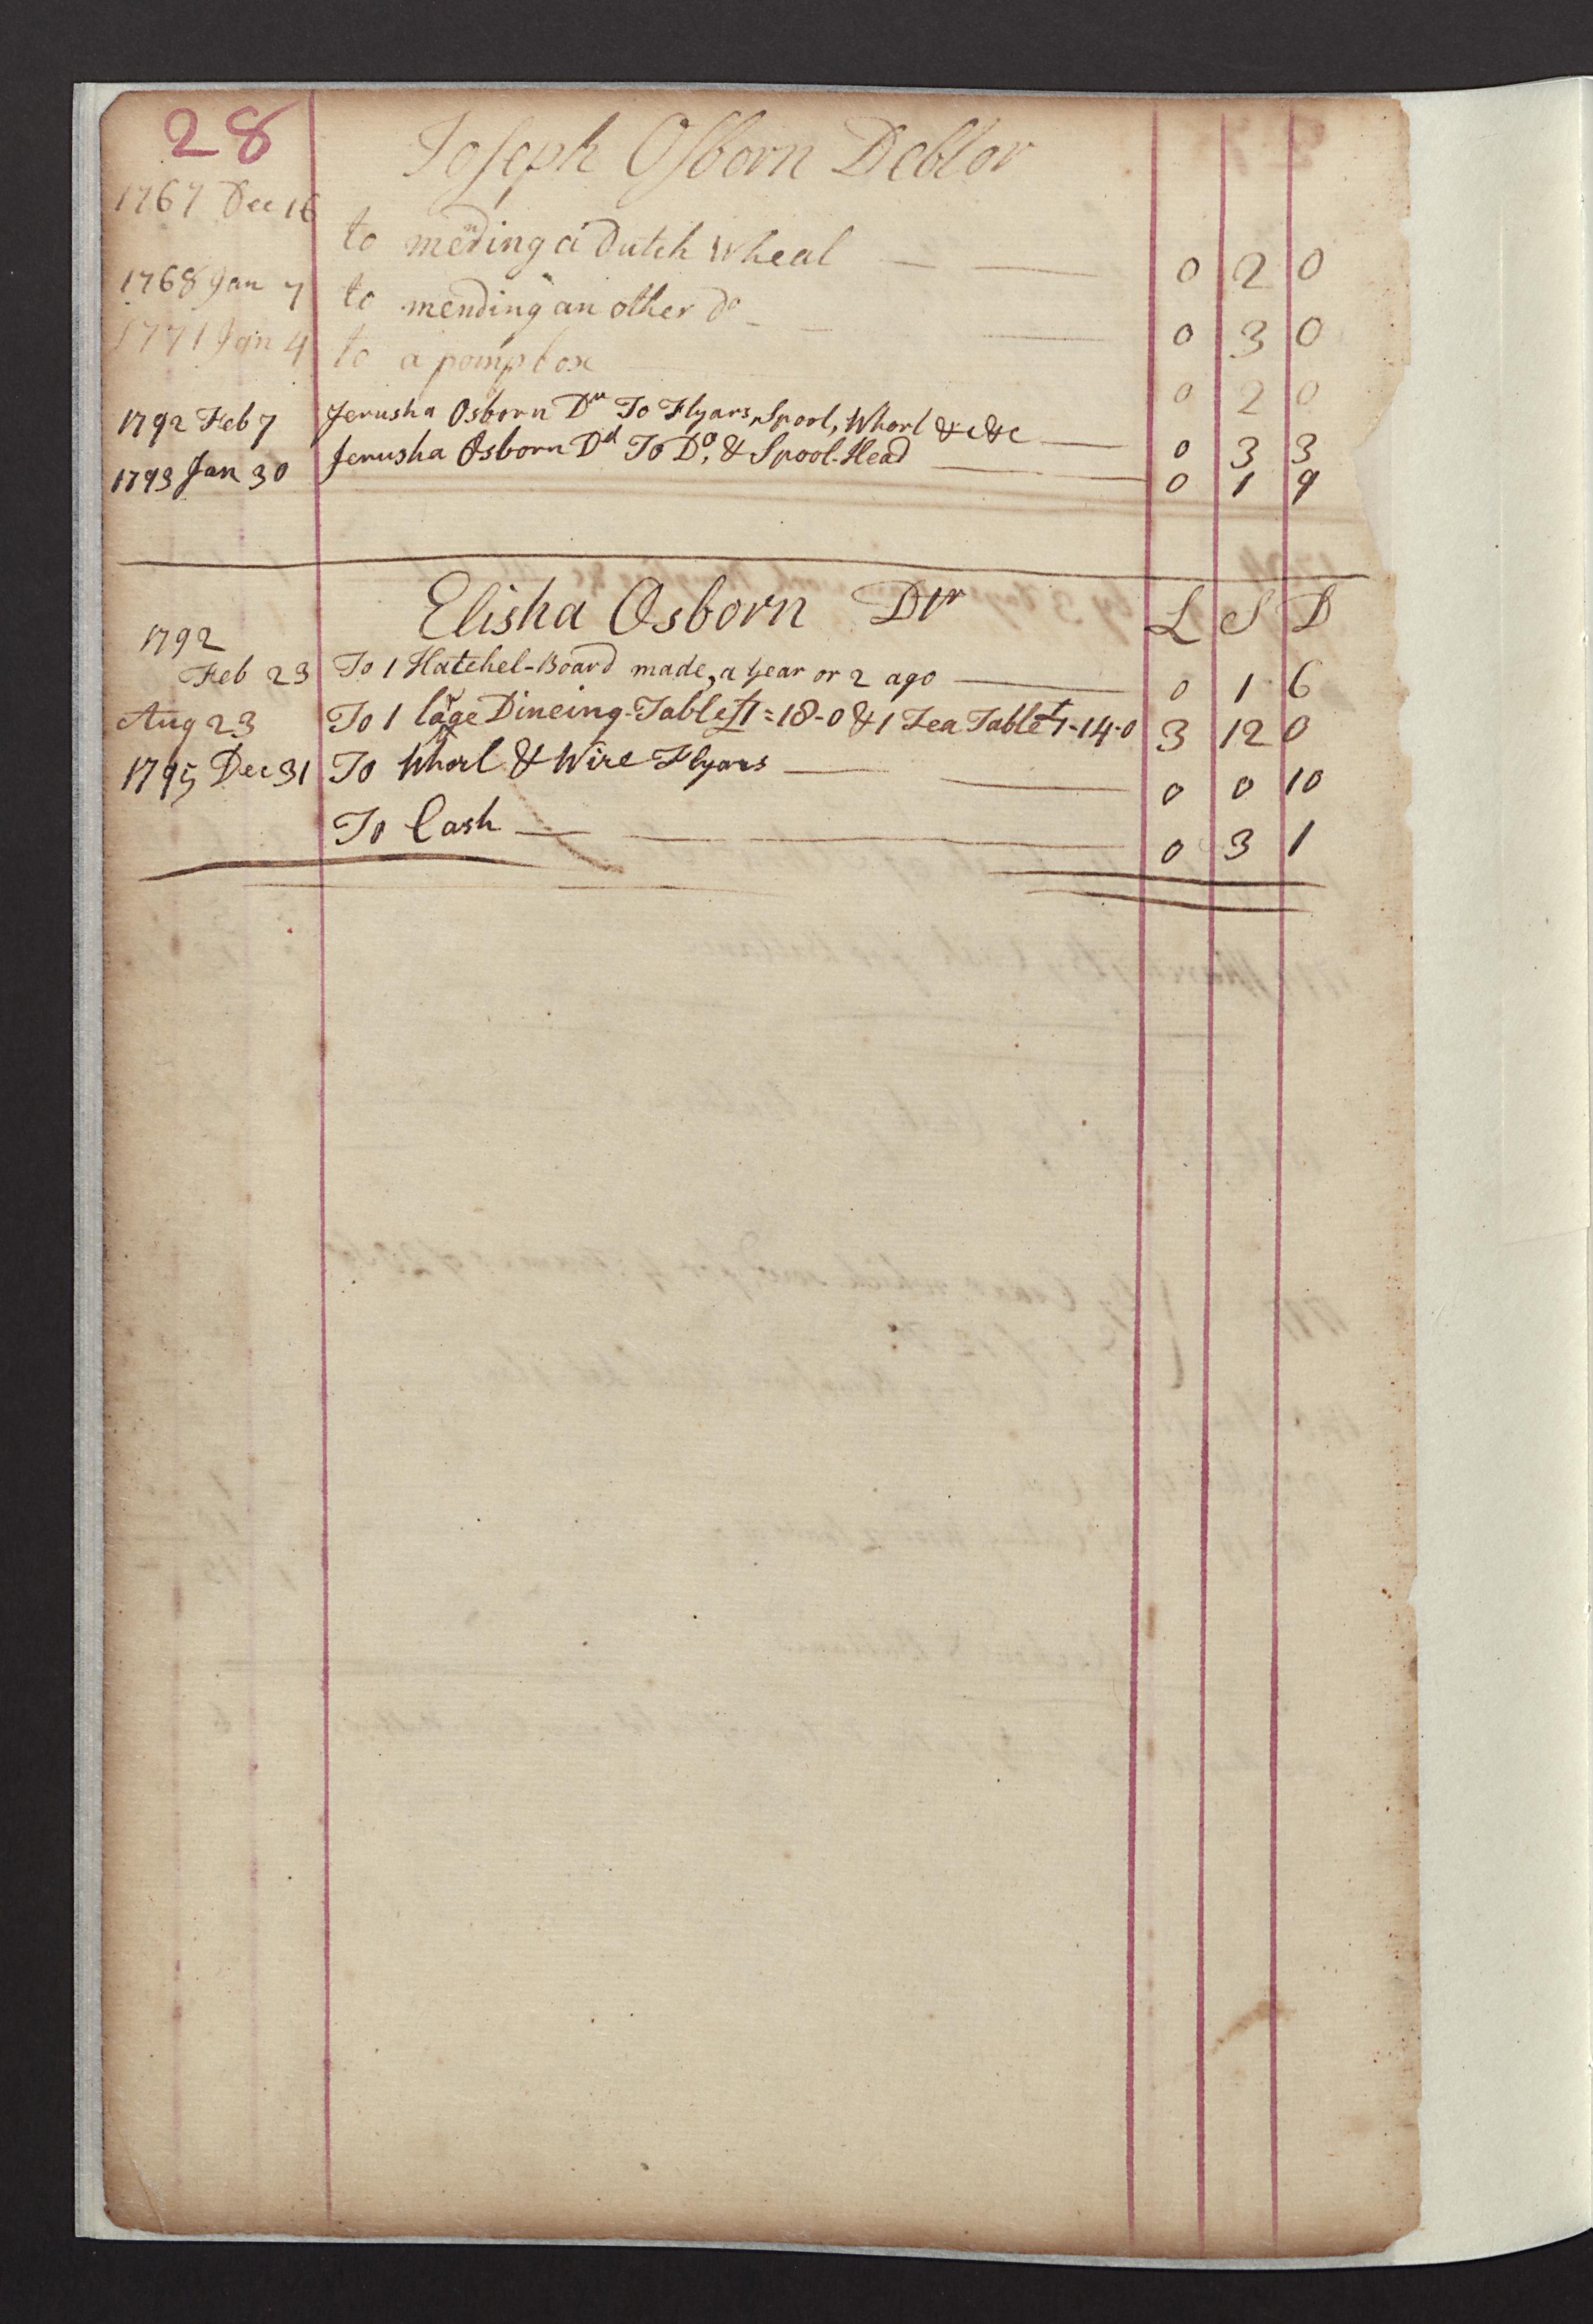 28
Joseph Osborn Debtor
1767 Dec 16 to mending a Dutch Wheal 0 2 0
1768 Jan 7 to mending an other do 0 3 0
1771 Jan 4 to a pomp box 0 2 0
1792 Feb 7 Jerusha Osborn Dr To Flyars, Spool, Whorl &c &c 0 3 3
1793 Jan 30 Jerusha Osborn Dd To Do, & Spool-Head 0 1 9
Elisha Osborn Dtr L S D
1792
Feb 23 To 1 Hatchel-Board made, a year or 2 ago 0 1 6
Aug 23 To 1 large Dineing-Table £1=18-0 & 1 Tea Table £1-14-0 3 12 0
1795 Dec 31 To Whorl & Wire Flyars 0 0 10
To Cash 0 3 1